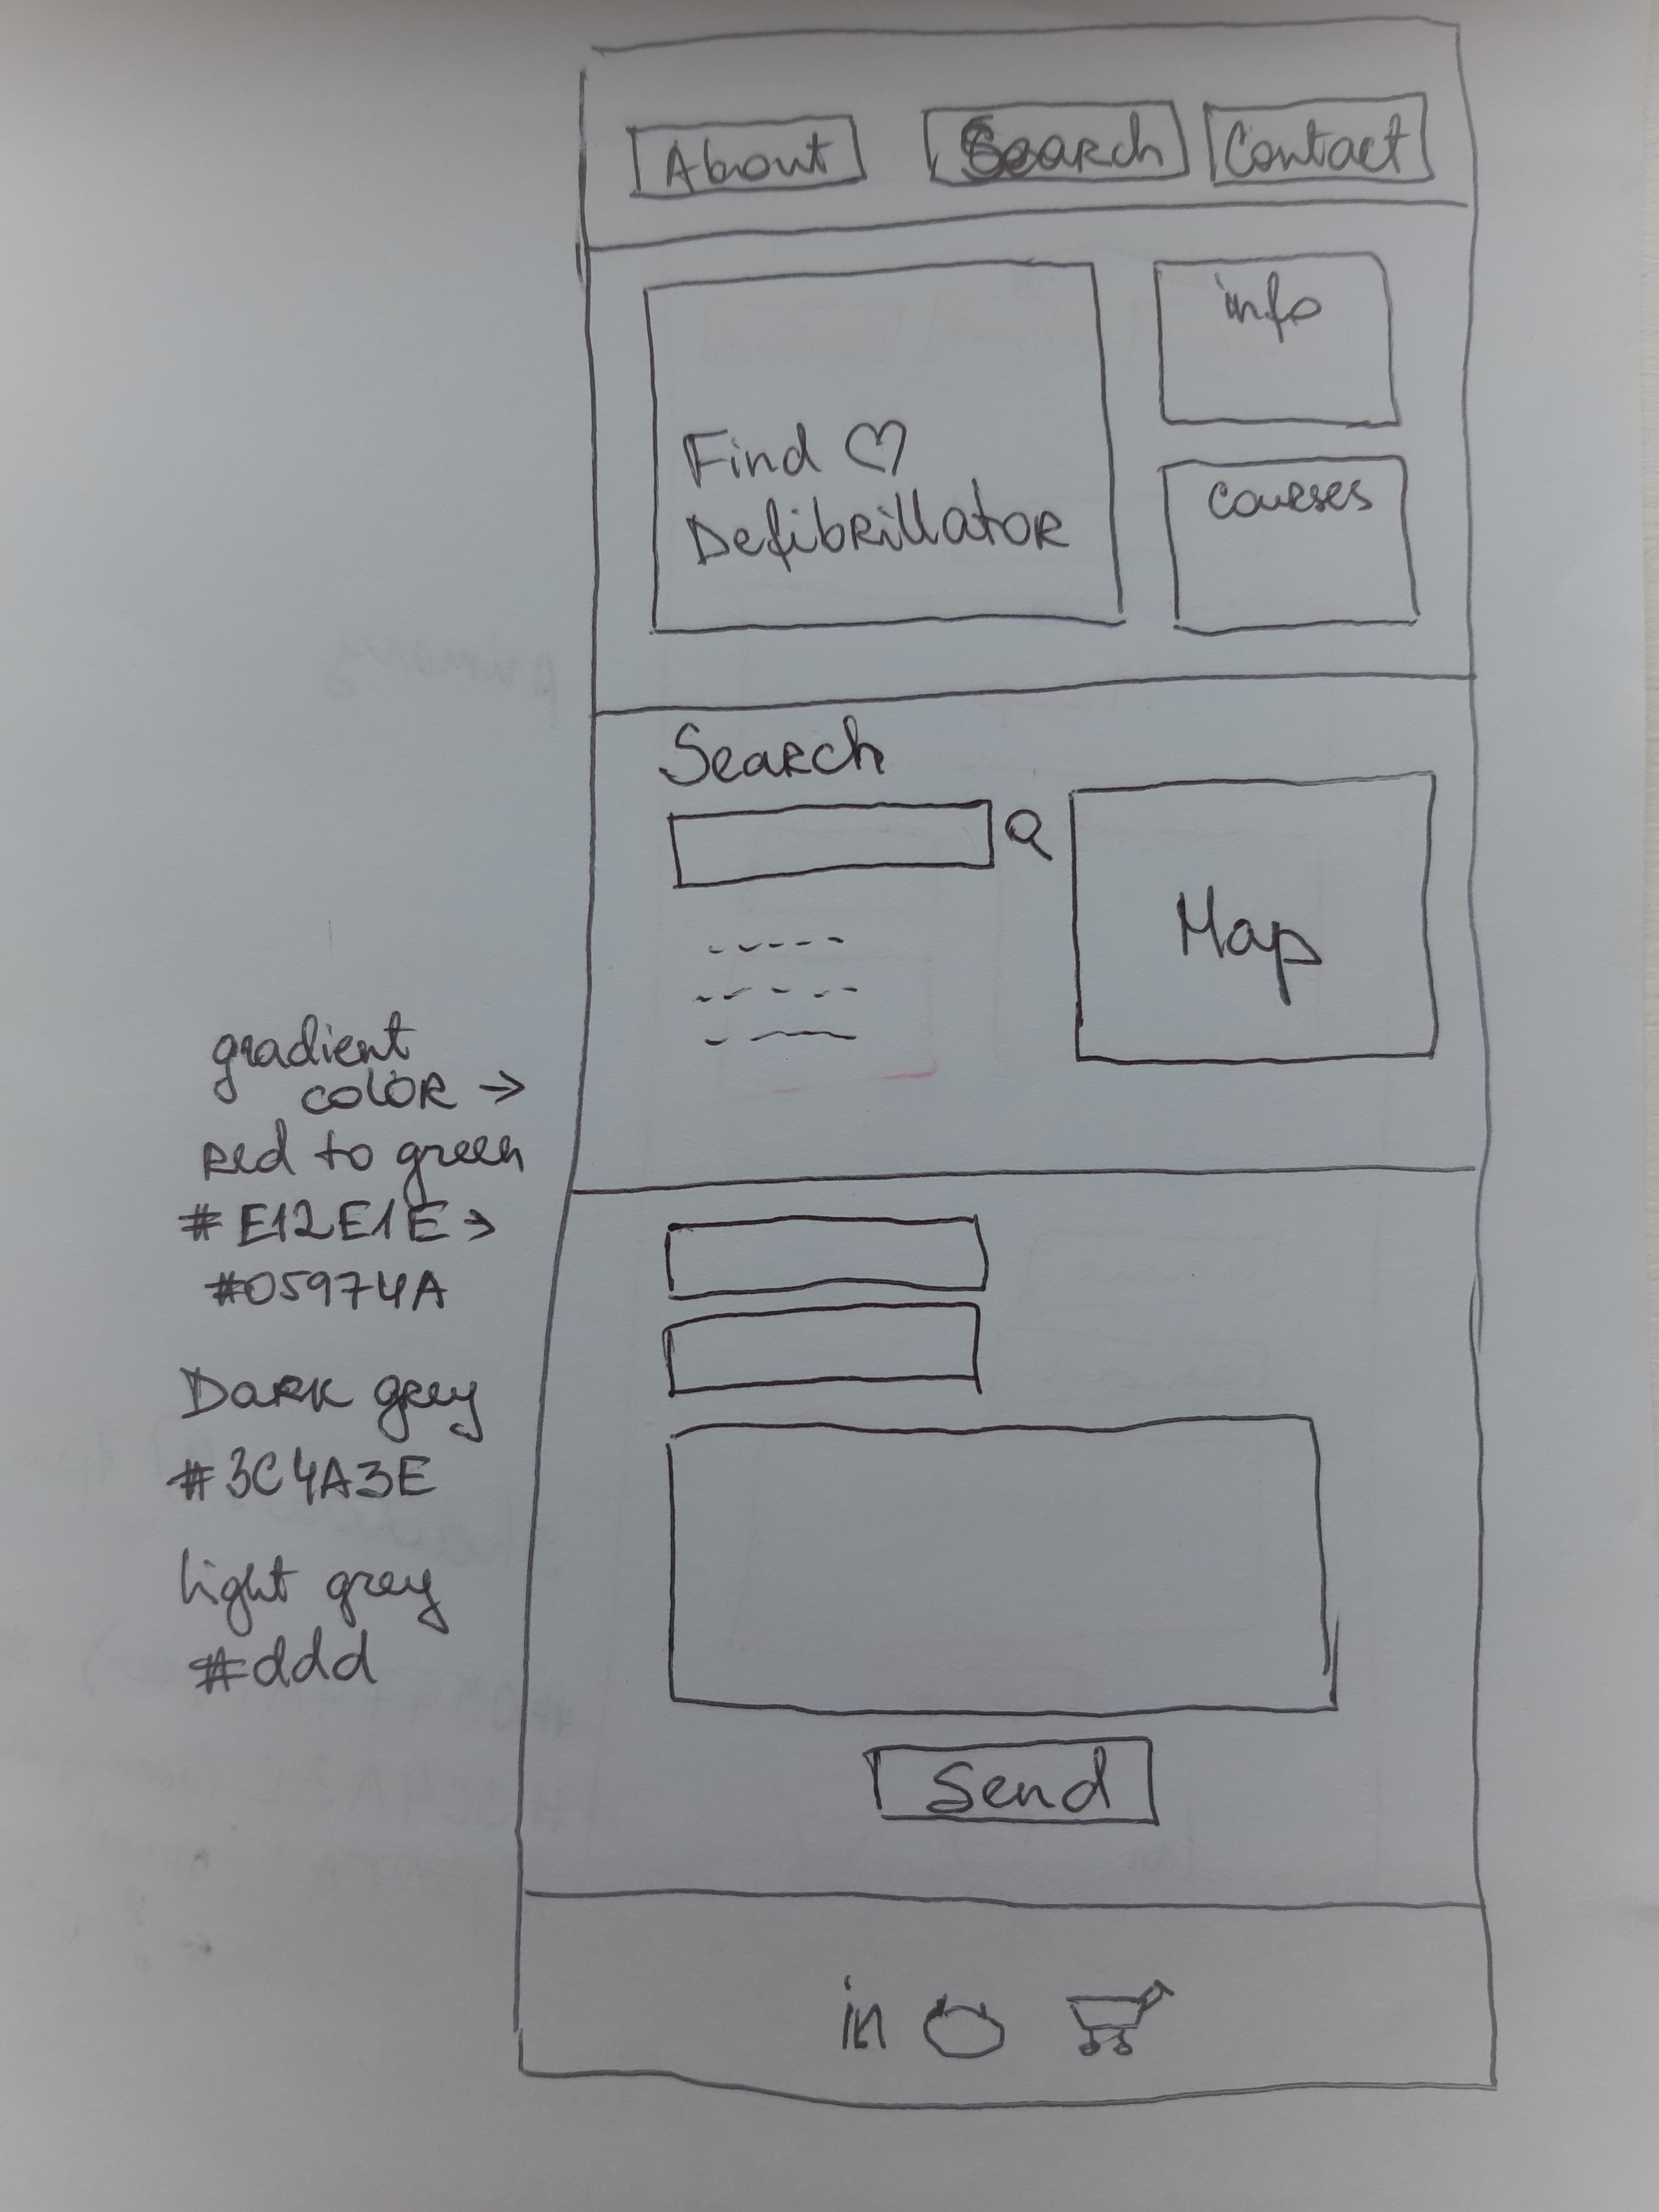 About Search Contact
info
Find ♡
Defibrillator
courses
Search
Map
gradient
color →
red to green
#E12E1E →
#05974A
Dark grey
#3C4A3E
light grey
#ddd
Send
in
primary